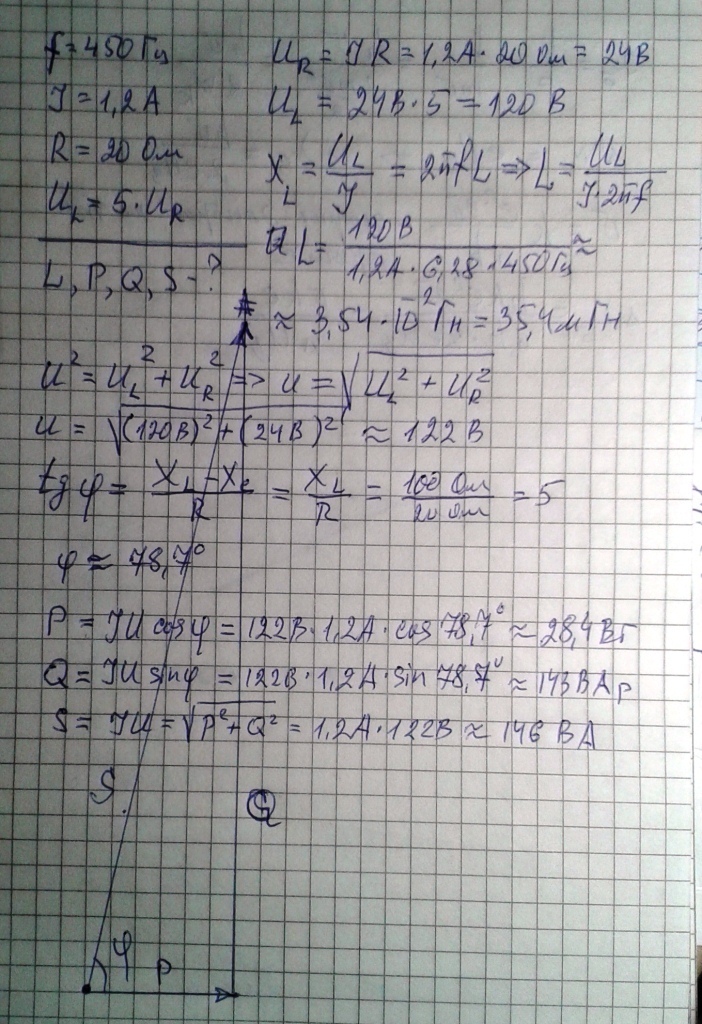 f = 450 Гц
I = 1,2 А
R = 20 Ом
U_L = 5·U_R
L, P, Q, S - ?
U_R = IR = 1,2А · 20 Ом = 24В
U_L = 24В · 5 = 120 В
X_L = U_L/I = 2πfL => L = U_L/(I·2πf)
L = 120В/(1,2А · 6,28 · 450Гц) ≈
≈ 3,54·10^-2 Гн = 35,4 мГн
U² = U_L² + U_R² => U = √(U_L² + U_R²)
U = √((120В)² + (24В)²) ≈ 122В
tg φ = (X_L - X_C)/R = X_L/R = 100 Ом/20 Ом = 5
φ ≈ 78,7°
P = IU cos φ = 122В · 1,2А · cos 78,7° ≈ 28,4Вт
Q = IU sin φ = 122В · 1,2А · sin 78,7° ≈ 143ВАр
S = IU = √(P² + Q²) = 1,2А · 122В ≈ 146 ВА
S
Q
φ
P